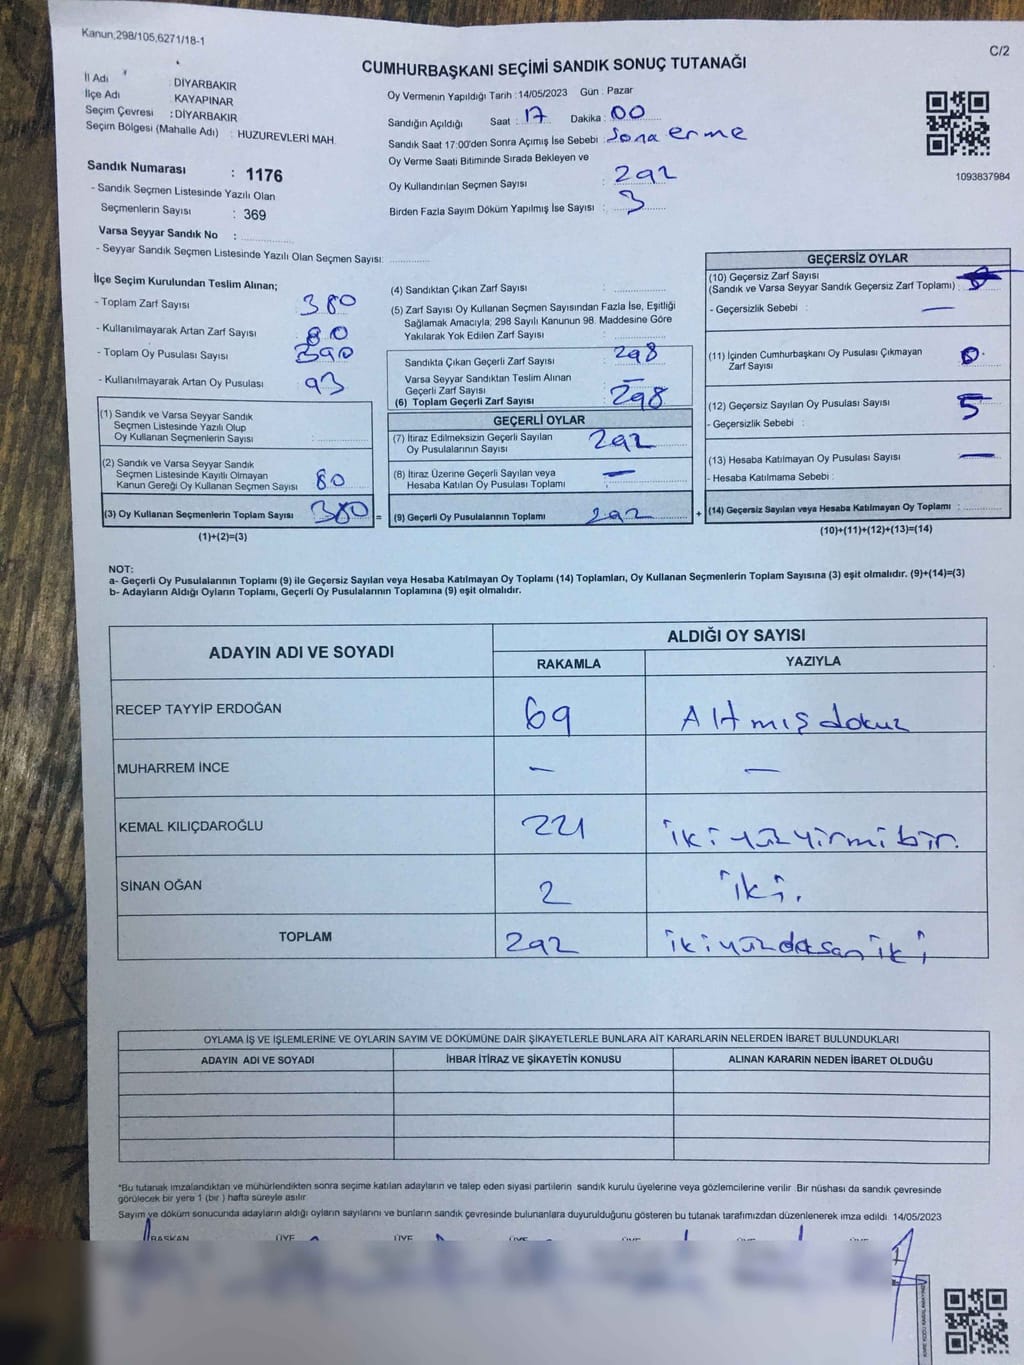 Kanun;298/105,6271/18-1
C/2
CUMHURBAŞKANI SEÇİMİ SANDIK SONUÇ TUTANAĞI
İl Adı : DİYARBAKIR
İlçe Adı : KAYAPINAR
Seçim Çevresi : DİYARBAKIR
Seçim Bölgesi (Mahalle Adı) : HUZUREVLERİ MAH.
Sandık Numarası : 1176
- Sandık Seçmen Listesinde Yazılı Olan
Seçmenlerin Sayısı : 369
Varsa Seyyar Sandık No :
- Seyyar Sandık Seçmen Listesinde Yazılı Olan Seçmen Sayısı:
Oy Vermenin Yapıldığı Tarih : 14/05/2023 Gün : Pazar
Sandığın Açıldığı Saat : 17 Dakika : 00
Sandık Saat 17:00'den Sonra Açımış İse Sebebi : Sona erme
Oy Verme Saati Bitiminde Sırada Bekleyen ve
Oy Kullandırılan Seçmen Sayısı : 292
Birden Fazla Sayım Döküm Yapılmış İse Sayısı : 3
1093837984
İlçe Seçim Kurulundan Teslim Alınan;
- Toplam Zarf Sayısı 380
- Kullanılmayarak Artan Zarf Sayısı 80
- Toplam Oy Pusulası Sayısı 390
- Kullanılmayarak Artan Oy Pusulası : 93
(1) Sandık ve Varsa Seyyar Sandık
Seçmen Listesinde Yazılı Olup
Oy Kullanan Seçmenlerin Sayısı :
(2) Sandık ve Varsa Seyyar Sandık
Seçmen Listesinde Kayıtlı Olmayan
Kanun Gereği Oy Kullanan Seçmen Sayısı 80
(3) Oy Kullanan Seçmenlerin Toplam Sayısı 380 =
(1)+(2)=(3)
(4) Sandıktan Çıkan Zarf Sayısı :
(5) Zarf Sayısı Oy Kullanan Seçmen Sayısından Fazla İse, Eşitliği
Sağlamak Amacıyla, 298 Sayılı Kanunun 98. Maddesine Göre
Yakılarak Yok Edilen Zarf Sayısı :
Sandıkta Çıkan Geçerli Zarf Sayısı : 298
Varsa Seyyar Sandıktan Teslim Alınan
Geçerli Zarf Sayısı : —
(6) Toplam Geçerli Zarf Sayısı : 298
GEÇERLİ OYLAR
(7) İtiraz Edilmeksizin Geçerli Sayılan
Oy Pusulalarının Sayısı : 292
(8) İtiraz Üzerine Geçerli Sayılan veya
Hesaba Katılan Oy Pusulası Toplamı : —
(9) Geçerli Oy Pusulalarının Toplamı 292 +
GEÇERSİZ OYLAR
(10) Geçersiz Zarf Sayısı
(Sandık ve Varsa Seyyar Sandık Geçersiz Zarf Toplamı) :
- Geçersizlik Sebebi : —
(11) İçinden Cumhurbaşkanı Oy Pusulası Çıkmayan
Zarf Sayısı : 0
(12) Geçersiz Sayılan Oy Pusulası Sayısı : 5
- Geçersizlik Sebebi :
(13) Hesaba Katılmayan Oy Pusulası Sayısı : —
- Hesaba Katılmama Sebebi :
(14) Geçersiz Sayılan veya Hesaba Katılmayan Oy Toplamı :
(10)+(11)+(12)+(13)=(14)
NOT:
a- Geçerli Oy Pusulalarının Toplamı (9) ile Geçersiz Sayılan veya Hesaba Katılmayan Oy Toplamı (14) Toplamları, Oy Kullanan Seçmenlerin Toplam Sayısına (3) eşit olmalıdır. (9)+(14)=(3)
b- Adayların Aldığı Oyların Toplamı, Geçerli Oy Pusulalarının Toplamına (9) eşit olmalıdır.
ADAYIN ADI VE SOYADI
ALDIĞI OY SAYISI
RAKAMLA YAZIYLA
RECEP TAYYİP ERDOĞAN 69 Altmış dokuz
MUHARREM İNCE — —
KEMAL KILIÇDAROĞLU 221 iki yüz yirmi bir.
SİNAN OĞAN 2 iki.
TOPLAM 292 iki yüz doksan iki
OYLAMA İŞ VE İŞLEMLERİNE VE OYLARIN SAYIM VE DÖKÜMÜNE DAİR ŞİKAYETLERLE BUNLARA AİT KARARLARIN NELERDEN İBARET BULUNDUKLARI
ADAYIN ADI VE SOYADI İHBAR İTİRAZ VE ŞİKAYETİN KONUSU ALINAN KARARIN NEDEN İBARET OLDUĞU
*Bu tutanak imzalandıktan ve mühürlendikten sonra seçime katılan adayların ve talep eden siyasi partilerin sandık kurulu üyelerine veya gözlemcilerine verilir. Bir nüshası da sandık çevresinde
görülecek bir yere 1 (bir ) hafta süreyle asılır.
Sayım ve döküm sonucunda adayların aldığı oyların sayılarını ve bunların sandık çevresinde bulunanlara duyurulduğunu gösteren bu tutanak tarafımızdan düzenlenerek imza edildi. 14/05/2023
BAŞKAN ÜYE ÜYE ÜYE ÜYE ÜYE ÜYE